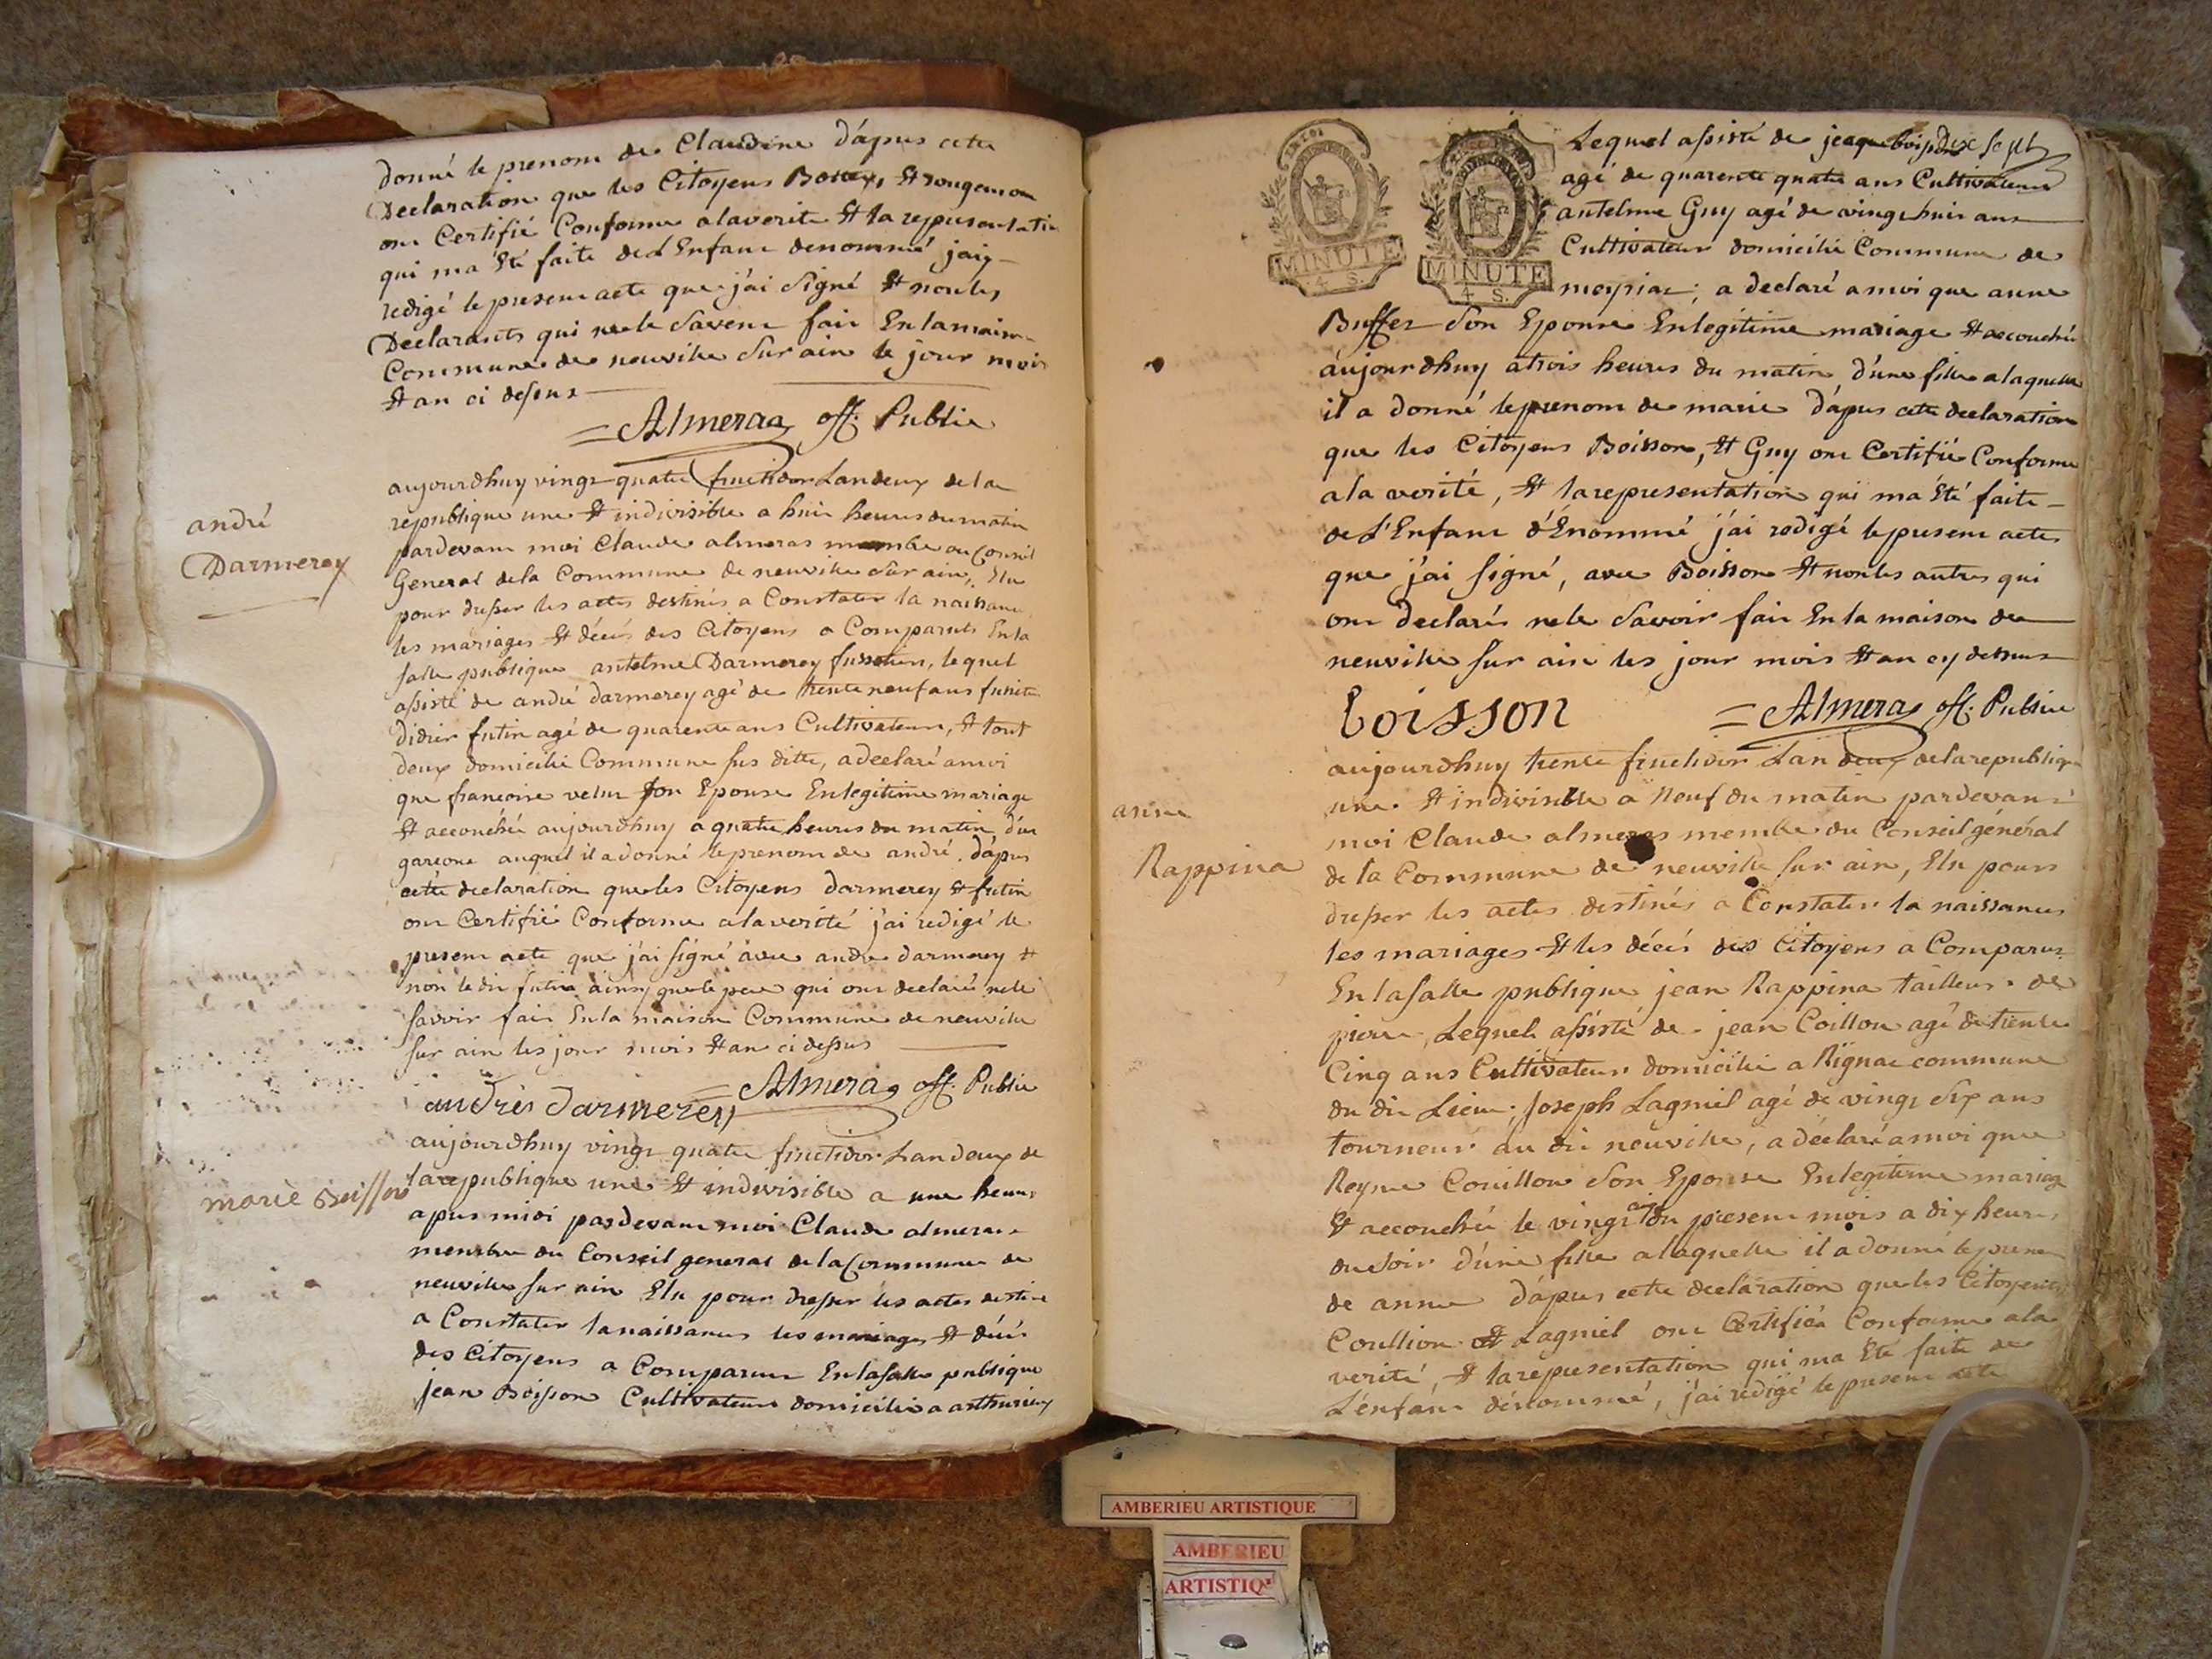 donné le prenom de Claudine d'apres cette
Declaration que les Citoyens Et
ont Certifié Conforme alaverite Et la representatio
qui ma Eté faite de L'Enfant denommé jay
redigé le present acte que j'ai Signé Et non les
Declarants qui ne le Savent fair En la maison
Commune de neuville Sur ain le jour mois
Et an ci dessus
Almeras off. Public
andré
Darmerey
aujourdhuy vingt quatre fructidor Landeux de la
republique une Et indivisible a huit heures du matin
pardevant moi Claude almeras membre du Conseil
General de la Commune de neuville Sur ain, Elu
pour dresser les actes destinés a Constater la naissance
les mariages Et décés des Citoyens a Comparuts En la
salle publique antelme Darmerey lequel
assisté de andré darmerey agé de trente neuf ans
didier futin agé de quarente ans Cultivateur, Et tout
deux domicilié Commune sus ditte, a declaré amoi
que francoise velur Son Epouse En legitime mariage
Et accouchée aujourdhuy a quatre heures du matin d'un
garcone auquel il a donné le prenom de andré. d'apres
cette declaration que les Citoyens darmerey Et futin
ont Certifié Conforme a la verité j'ai redigé le
present acte que j'ai signé avec andre darmerey Et
non le dit futin ainsy que le pere qui ont declaré ne le
savoir fair En la maison Commune de neuville
sur ain les jour mois Et an ci dessus
andrés darmerey Almeras off. Public
marie Boisson
aujourdhuy vingt quatre fructidor Landeux de
la republique une Et indivisible a une heure
apres midi pardevant moi Claude almeras
membre du Conseil general de la Commune de
neuville sur ain Elu pour dresser les actes destiné
a Constater la naissances les mariages Et décés
des Citoyens a Comparu En la salle publique
jean Boisson Cultivateur domicilié a
dix sept
MINUTE
4 S.
MINUTE
4 S.
Lequel assisté de
agé de quarente quatre ans Cultivateur
antelme Guy agé de vingt huit ans
Cultivateur domicilié Commune de
a declaré a moi que anne
Buffet Son Epouse En legitime mariage Et accouchée
aujourdhuy a trois heures du matin, d'une fille a laquelle
il a donné le prenom de marie d'apres cette declaration
que les Citoyens Boisson, Et Guy ont Certifié Conforme
a la verité, Et la representation qui ma Eté faite
de L'Enfant d'Enommé j'ai redigé le present acte
que j'ai signé, avec Boisson Et non les autres qui
ont declarés ne le Savoir fair En la maison de
neuville sur ain les jour mois Et an cy dessus
boisson Almeras off. Public
anne
Rappina
aujourdhuy trente fructidor Lan deux de la republique
une Et indivisible a Neuf du matin pardevant
moi Claude almeras membre du Conseil général
de la Commune de neuville sur ain, Elu pour
dresser les actes destinés a Constater la naissances
les mariages Et les décés des Citoyens a Comparut
En la salle publique jean Rappina tailleur de
pierre, Lequel assisté de jean Coillou agé de trente
Cinq ans Cultivateur domicilié a Rignat commune
du dit Lieu; Joseph Lagniel agé de vingt six ans
tourneur au dit neuville, a déclaré a moi que
Reyne Couillou Son Epouse En legitime mariage
Et accouchée le vingt du present mois a dix heures
du Soir d'une fille a laquelle il a donné le prenom
de anne d'apres cette declaration que les Citoyens
Coullion Et Lagniel ont Certifiés Conforme a la
verité, Et la representation qui ma Eté faite de
L'énfant dénommé, j'ai redigé le present acte
AMBERIEU ARTISTIQUE
AMBERIEU
ARTISTIQ